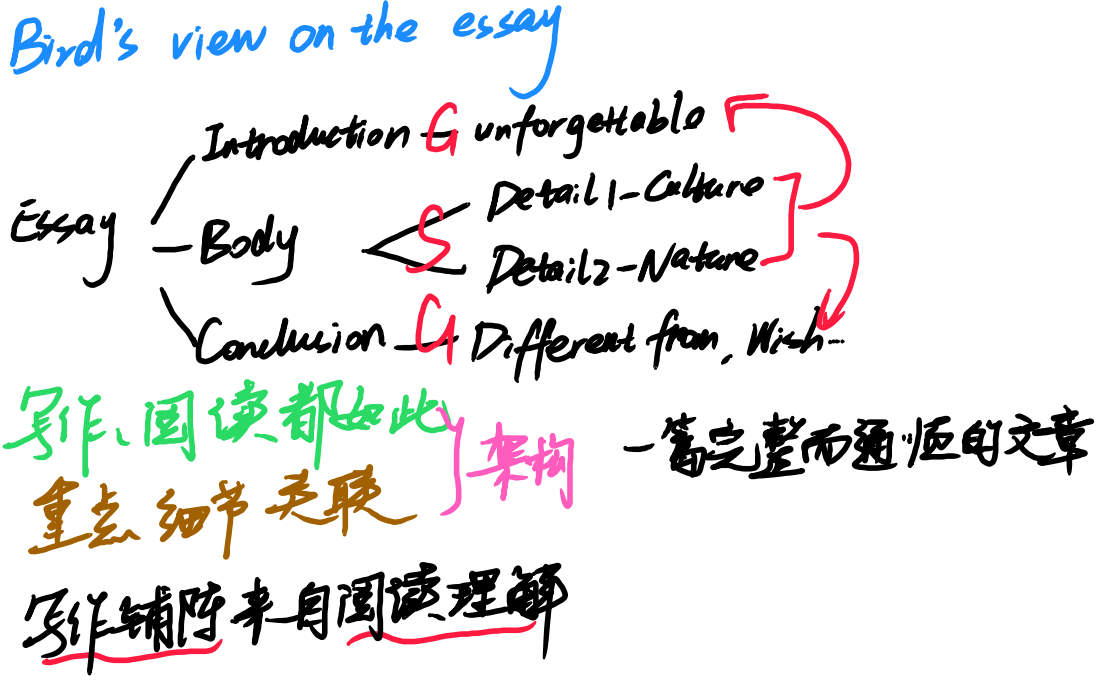 Bird's view on the essay
Introduction G unforgettable
Essay
Body S Detail1-Culture
Detail2-Nature
Conclusion G Different from, Wish...
写作、阅读都如此
架构
一篇完整而通顺的文章
重点 细节 关联
写作铺陈来自阅读理解